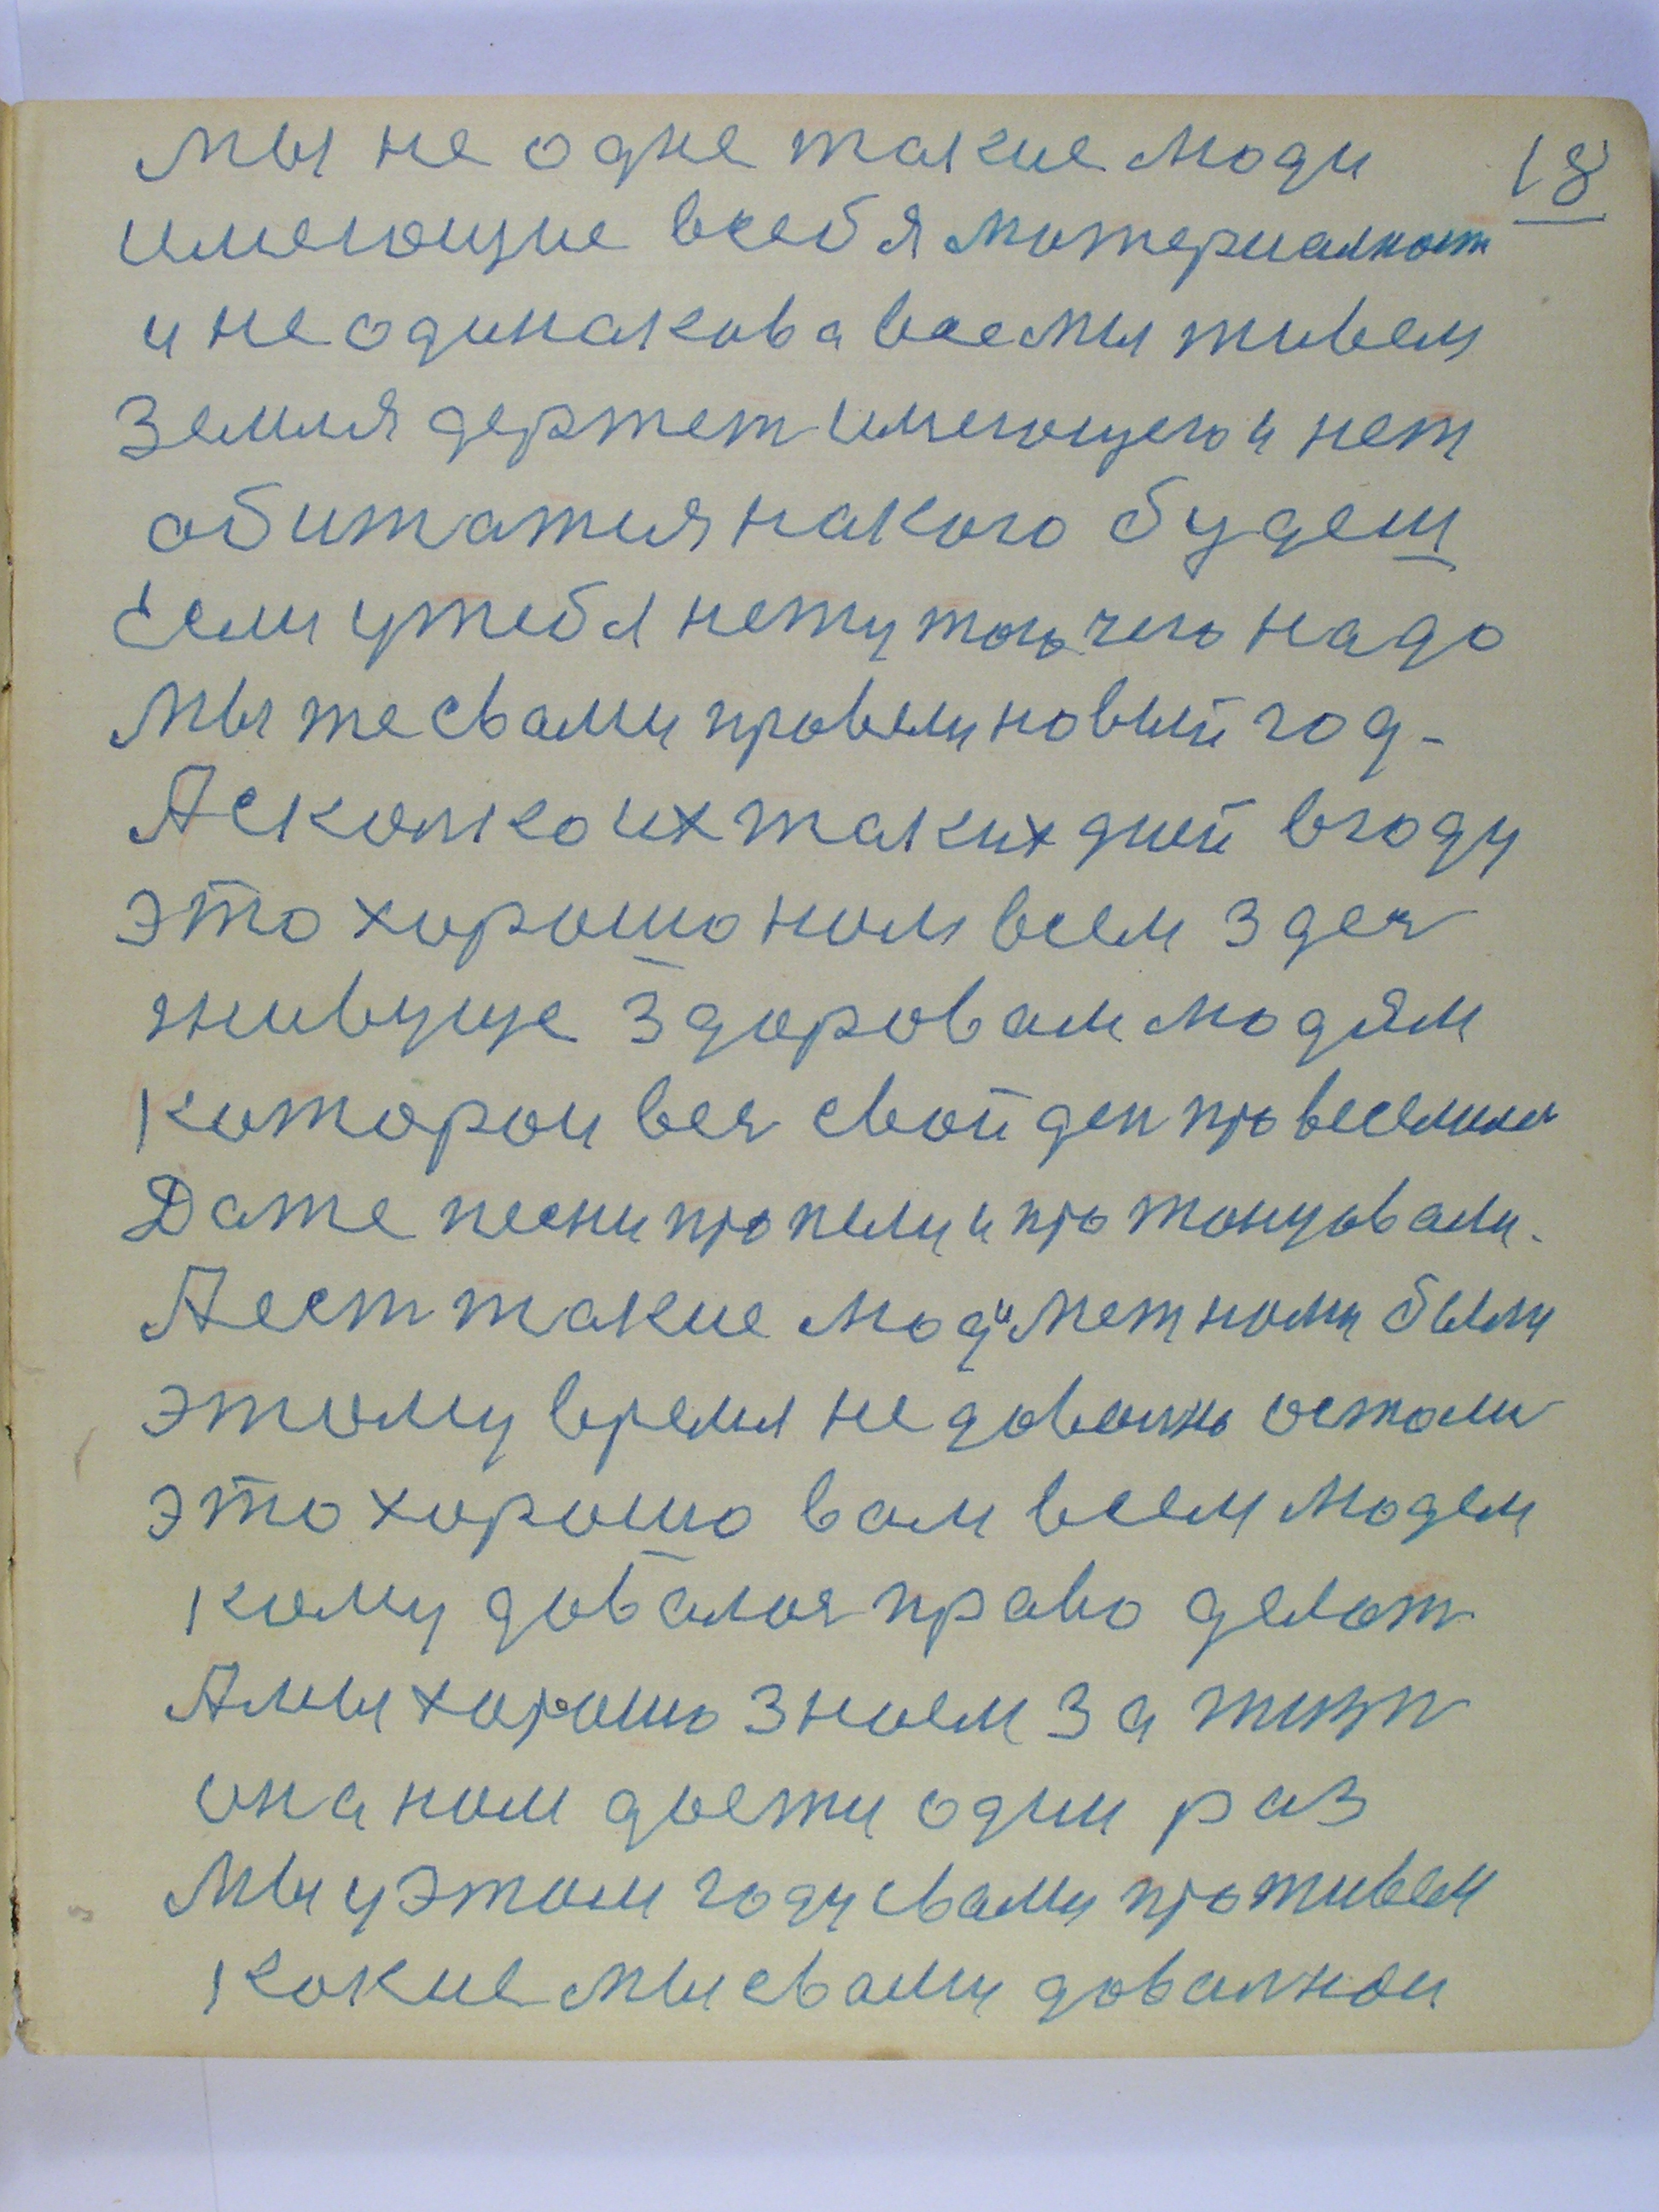 мы не одне такие люди 18
имеющие всебя материалност
и не одинакова все мы живем
Земля держет имеющего и нет
обижатия накого будеш
Если утебя нету того чего надо
Мы же свами провели новый год-
А сколко их таких дней вгоду
это хорошо нам всем здес
живуще здоровам людям
которои вес свой ден провеселилис
Даже песни пропели и протонцовали.
А ест такие люди меж нами были
этому время не доволно остались
это хорошо вам всем людем
кому довалос право делат
А мы хорошо знаем за жизн
она нам дается один раз
Мы у этом году свами проживем
какие мы свами доволнои